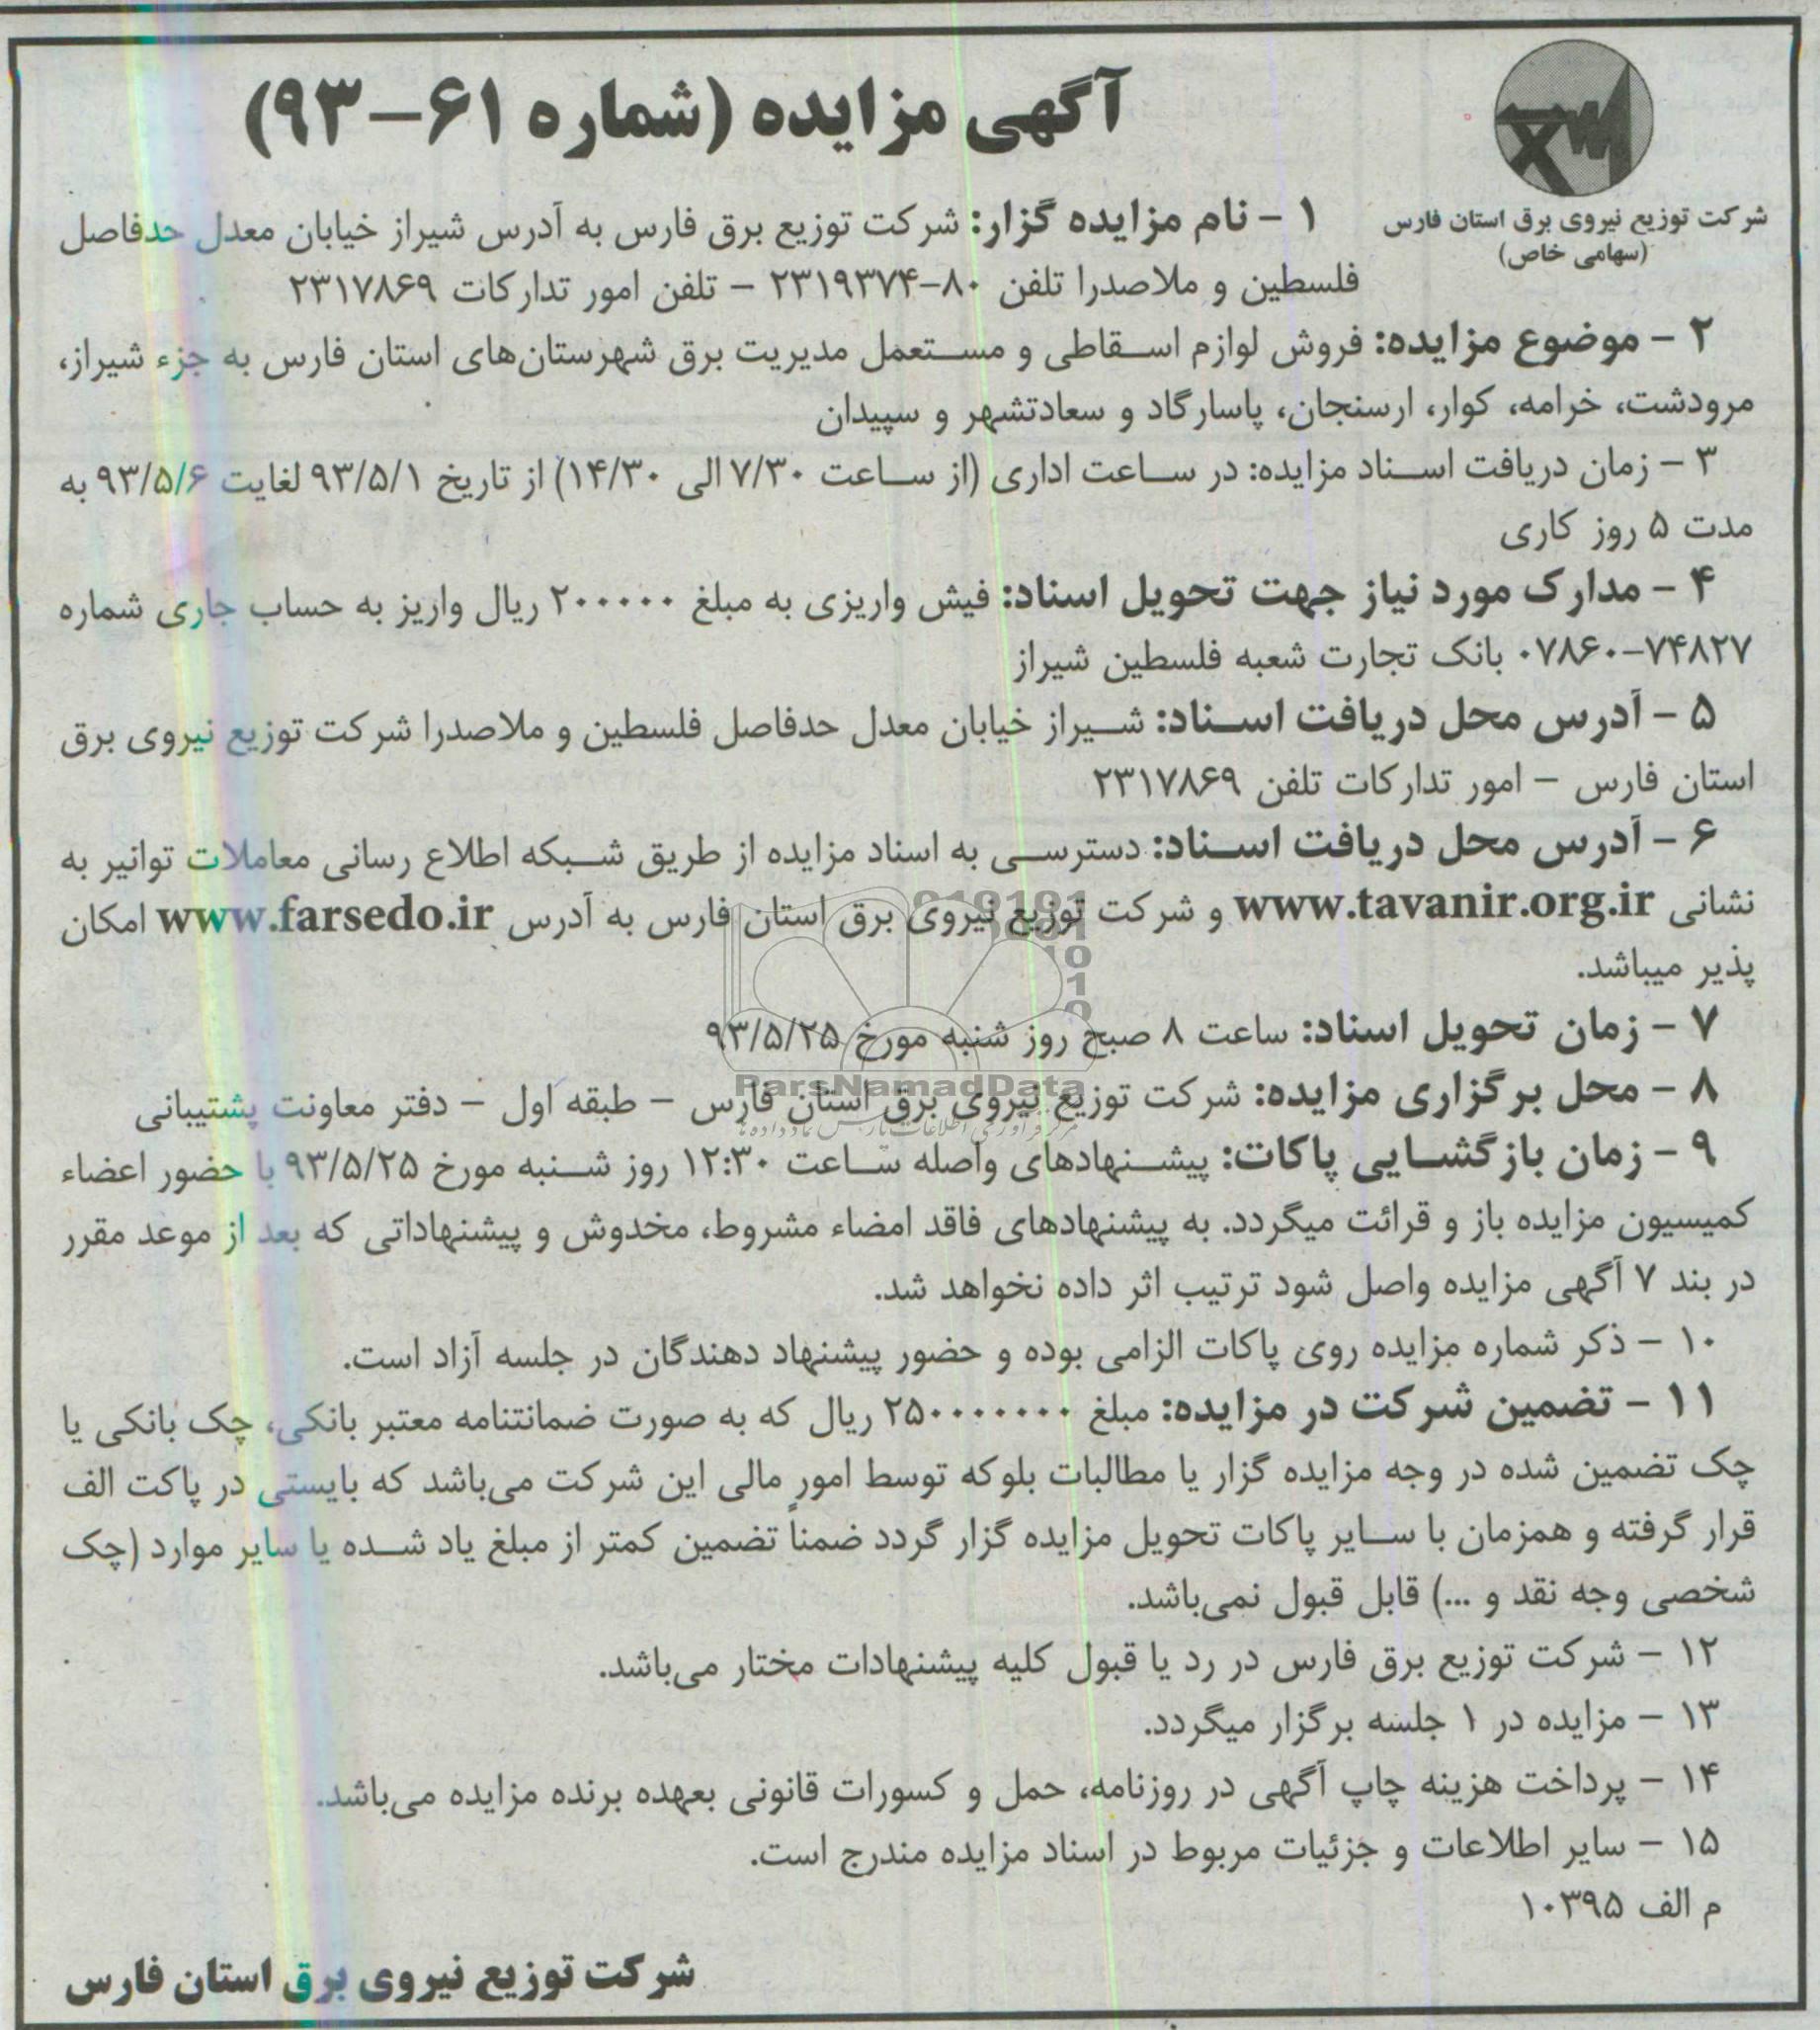 آگهی مزایده (شماره ۶۱-۹۳)
شرکت توزیع نیروی برق استان فارس
(سهامی خاص)
۱ - نام مزایده گزار: شرکت توزیع برق فارس به آدرس شیراز خیابان معدل حدفاصل
فلسطین و ملاصدرا تلفن ۸۰-۲۳۱۹۳۷۴ - تلفن امور تدارکات ۲۳۱۷۸۶۹
۲ - موضوع مزایده: فروش لوازم اسقاطی و مستعمل مدیریت برق شهرستان‌های استان فارس به جزء شیراز،
مرودشت، خرامه، کوار، ارسنجان، پاسارگاد و سعادتشهر و سپیدان
۳ - زمان دریافت اسناد مزایده: در ساعت اداری (از ساعت ۷/۳۰ الی ۱۴/۳۰) از تاریخ ۹۳/۵/۱ لغایت ۹۳/۵/۶ به
مدت ۵ روز کاری
۴ - مدارک مورد نیاز جهت تحویل اسناد: فیش واریزی به مبلغ ۲۰۰۰۰۰ ریال واریز به حساب جاری شماره
۰۷۸۶۰-۷۴۸۲۷ بانک تجارت شعبه فلسطین شیراز
۵ - آدرس محل دریافت اسناد: شیراز خیابان معدل حدفاصل فلسطین و ملاصدرا شرکت توزیع نیروی برق
استان فارس - امور تدارکات تلفن ۲۳۱۷۸۶۹
۶ - آدرس محل دریافت اسناد: دسترسی به اسناد مزایده از طریق شبکه اطلاع رسانی معاملات توانیر به
نشانی www.tavanir.org.ir و شرکت توزیع نیروی برق استان فارس به آدرس www.farsedo.ir امکان
پذیر میباشد.
۷ - زمان تحویل اسناد: ساعت ۸ صبح روز شنبه مورخ ۹۳/۵/۲۵
ParsNamadData
۸ - محل برگزاری مزایده: شرکت توزیع نیروی برق استان فارس - طبقه اول - دفتر معاونت پشتیبانی
۹ - زمان بازگشایی پاکات: پیشنهادهای واصله ساعت ۱۲:۳۰ روز شنبه مورخ ۹۳/۵/۲۵ با حضور اعضاء
کمیسیون مزایده باز و قرائت میگردد. به پیشنهادهای فاقد امضاء مشروط، مخدوش و پیشنهاداتی که بعد از موعد مقرر
در بند ۷ آگهی مزایده واصل شود ترتیب اثر داده نخواهد شد.
۱۰ - ذکر شماره مزایده روی پاکات الزامی بوده و حضور پیشنهاد دهندگان در جلسه آزاد است.
۱۱ - تضمین شرکت در مزایده: مبلغ ۲۵۰۰۰۰۰۰۰ ریال که به صورت ضمانتنامه معتبر بانکی، چک بانکی یا
چک تضمین شده در وجه مزایده گزار یا مطالبات بلوکه توسط امور مالی این شرکت می‌باشد که بایستی در پاکت الف
قرار گرفته و همزمان با سایر پاکات تحویل مزایده گزار گردد ضمناً تضمین کمتر از مبلغ یاد شده یا سایر موارد (چک
شخصی وجه نقد و ...) قابل قبول نمی‌باشد.
۱۲ - شرکت توزیع برق فارس در رد یا قبول کلیه پیشنهادات مختار می‌باشد.
۱۳ - مزایده در ۱ جلسه برگزار میگردد.
۱۴ - پرداخت هزینه چاپ آگهی در روزنامه، حمل و کسورات قانونی بعهده برنده مزایده می‌باشد.
۱۵ - سایر اطلاعات و جزئیات مربوط در اسناد مزایده مندرج است.
م الف ۱۰۳۹۵
شرکت توزیع نیروی برق استان فارس